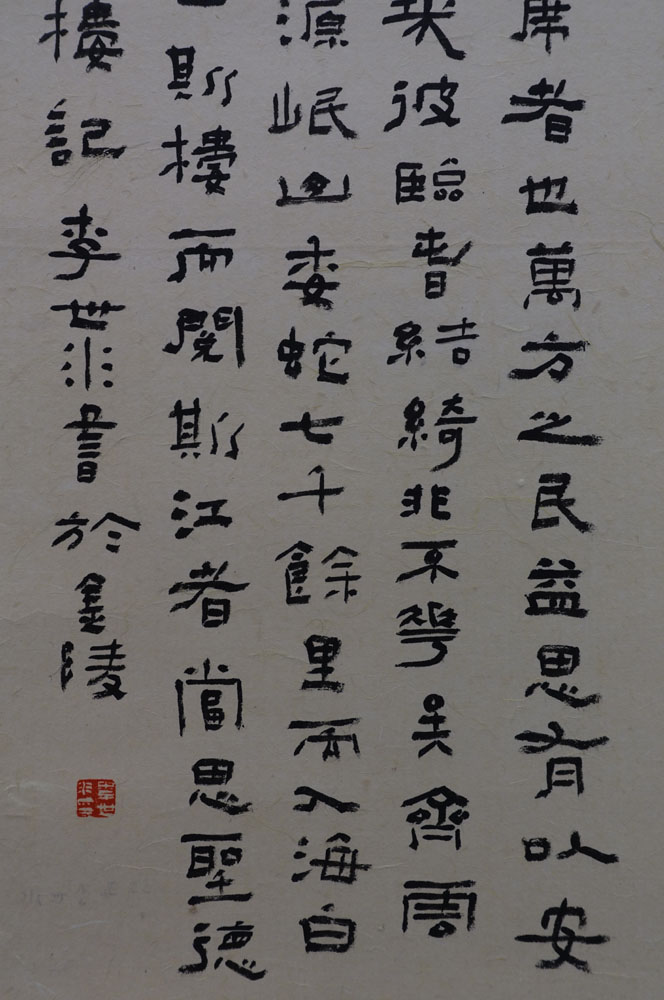 席者也萬方之民益思有以安
彼臨春結綺非不華矣齊雲
源岷山委蛇七千餘里而入海白
斯樓而閱斯江者當思聖德
樓記 李世非書於金陵
李世非印